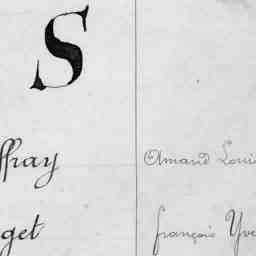 S
ffray Amand Loui
get françois Yve